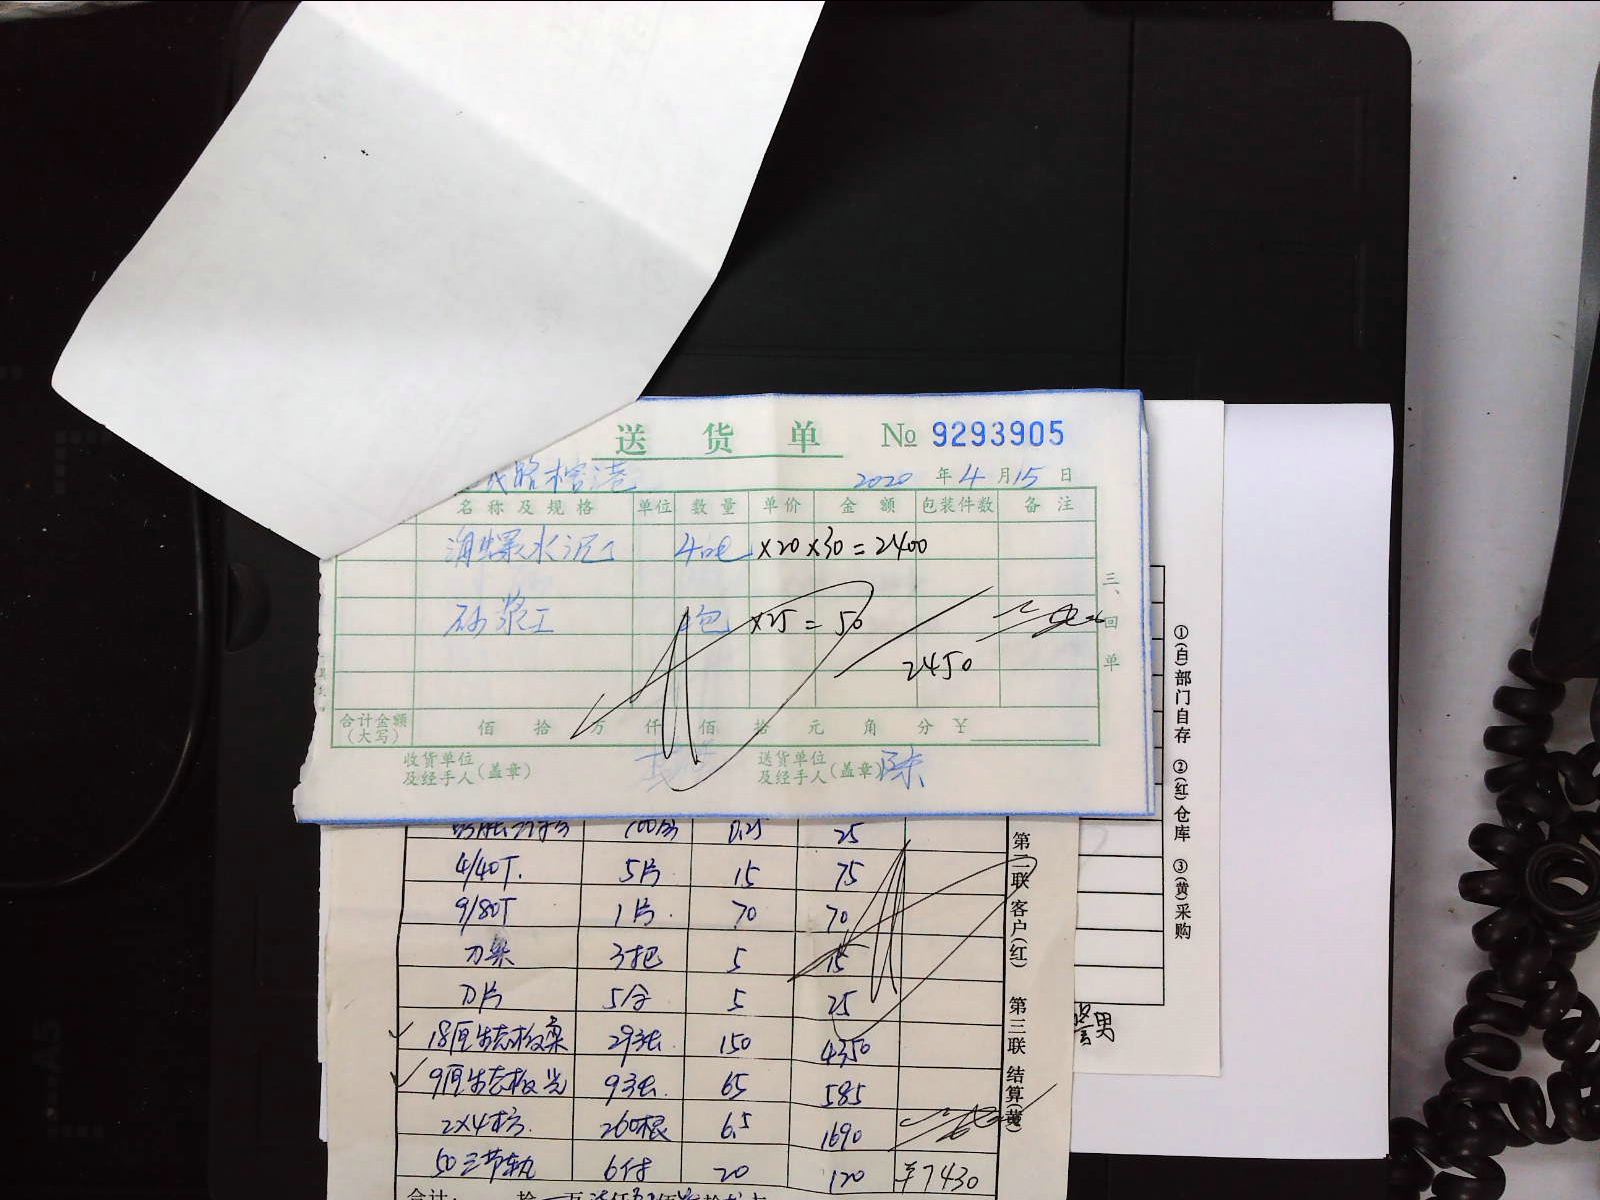 送 货 单 № 9293905
2020 年 4 月 15 日
名称及规格 单位 数量 单价 金额 包装件数 备注
海螺水泥 4吨 ×20×30=2400
砂浆王 包 ×25=50
2450
合计金额(大写) 佰 拾 万 仟 佰 拾 元 角 分 ¥
收货单位及经手人(盖章)
送货单位及经手人(盖章) 陈
三、回单
100 0.25 25
4/40T. 5片 15 75
9/80T 1片. 70 70
刀架 3把 5 15
刀片 5合 5 25
18厘生态板桑 29张 150 4350
9厘生态板光 9张 65 585
2×4方 260根 6.5 1690
50三节轨 6付 20 120 ¥7430
合计: 拾
第二联 客户(红) 第三联 结算(黄)
①(白)部门自存 ②(红)仓库 ③(黄)采购